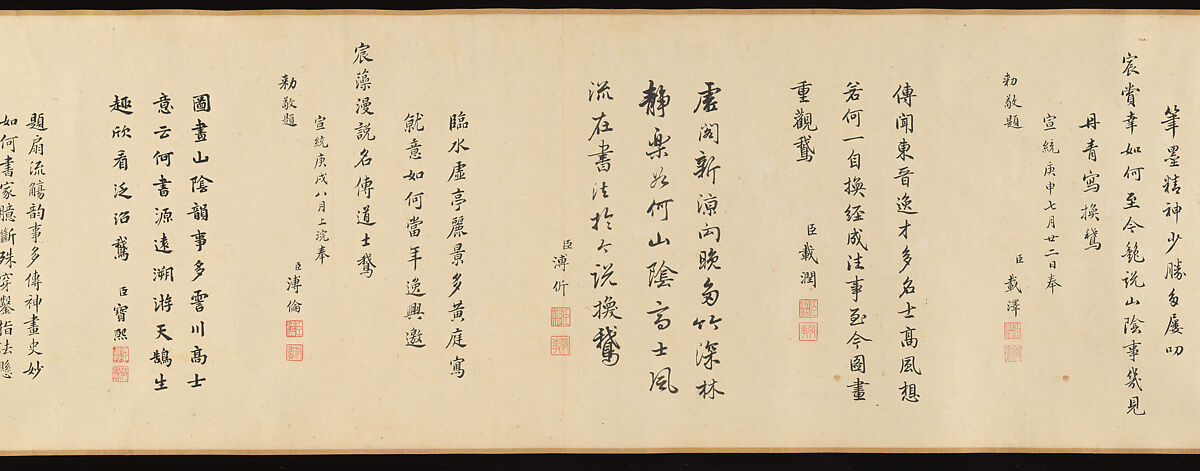 筆墨精神少勝多屢叨
宸賞幸如何至今艷說山陰事幾見
丹青寫換鵝
宣統庚申七月廿二日奉
勑敬題
臣載澤
傳聞東晉逸才多名士高風想
若何一自換經成法事至今圖畫
重觀鵝
臣載潤
虛閣新涼向晚多竹深林
靜樂如何山陰高士風
流在書法於今說換鵝
臣溥伒
臨水虛亭麗景多黃庭寫
就意如何當年逸興邀
宸藻漫說名傳道士鵝
宣統庚戌八月上浣奉
勑敬題
臣溥倫
圖畫山陰韻事多霅川高士
意云何書源遠溯游天鵠生
趣欣看泛沼鵝
臣寶熙
題扇流觴韵事多傳神畫史妙
如何書家臆斷殊穿鑿指法懸